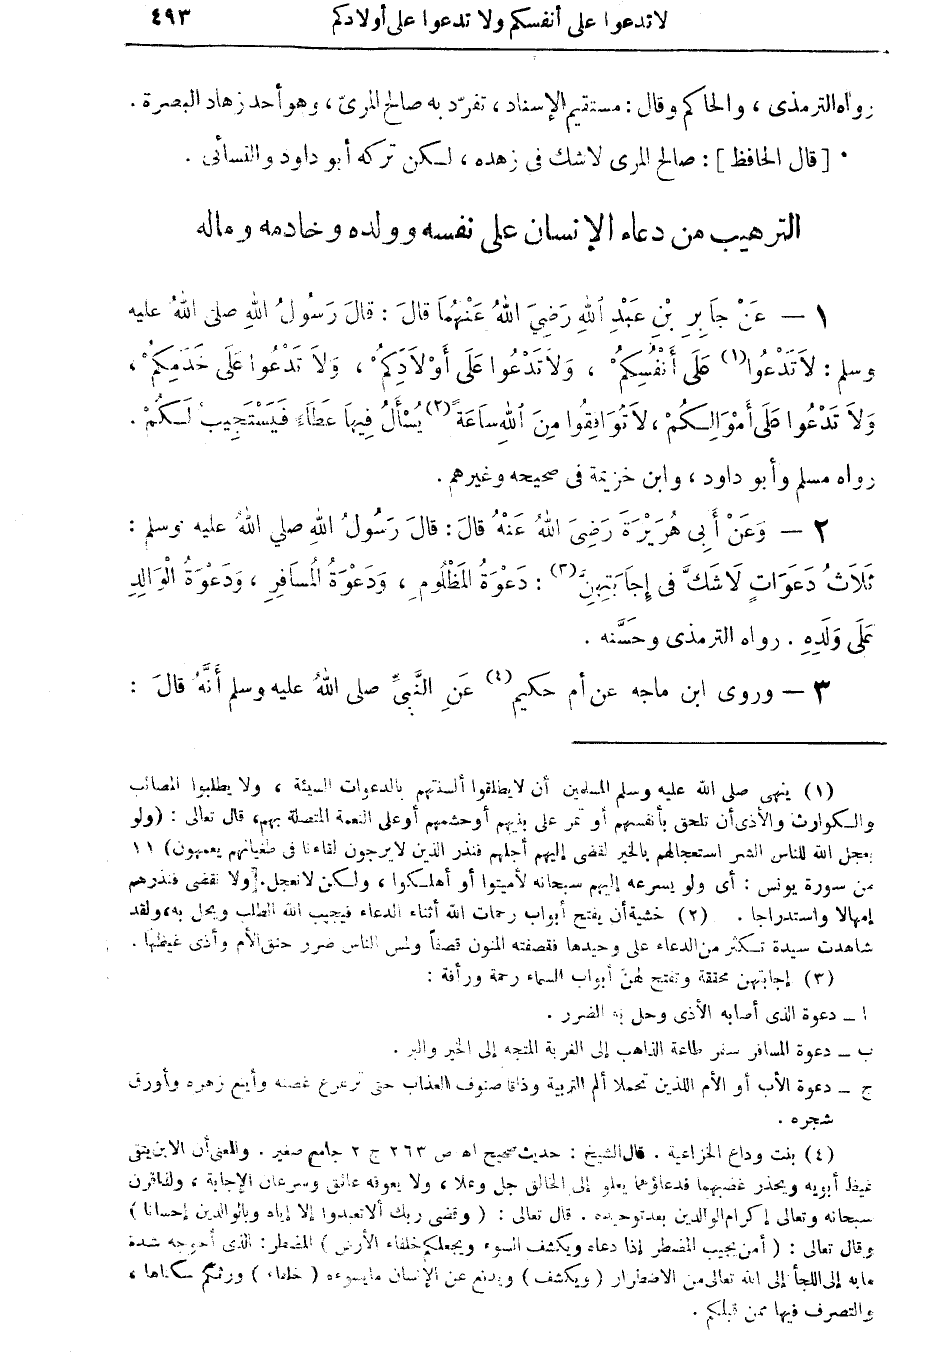 لا تدعوا على أنفسكم ولا تدعوا على أولادكم ٤٩٣
رواه الترمذى ، والحاكم وقال : مستقيم الإسناد ، تفرّد به صالح المرىّ ، وهو أحد زهاد البصرة .
[ قال الحافظ ] : صالح المرى لا شك فى زهده ، لكن تركه أبو داود والنسائى .
الترهيب من دعاء الإنسان على نفسه وولده وخادمه وماله
١ — عَنْ جَابِرِ بْنِ عَبْدِ اللهِ رَضِيَ اللهُ عَنْهُمَا قَالَ : قَالَ رَسُولُ اللهِ صلى اللهُ عليه
وسلم : لاَ تَدْعُوا (١) عَلَى أَنْفُسِكُمْ ، وَلاَ تَدْعُوا عَلَى أَوْلاَدِكُمْ ، وَلاَ تَدْعُوا عَلَى خَدَمِكُمْ ،
وَلاَ تَدْعُوا عَلَى أَمْوَالِكُمْ ، لاَ تُوَافِقُوا مِنَ اللهِ سَاعَةً (٢) يُسْأَلُ فِيهَا عَطَاءً فَيَسْتَجِيبَ لَكُمْ .
رواه مسلم وأبو داود ، وابن خزيمة فى صحيحه وغيرهم .
٢ — وَعَنْ أَبِى هُرَيْرَةَ رَضِىَ اللهُ عَنْهُ قَالَ : قَالَ رَسُولُ اللهِ صلي اللهُ عليه وسلم :
ثَلاَثُ دَعَوَاتٍ لاَ شَكَّ فى إِجَابَتِهِنَّ (٣) : دَعْوَةُ المَظْلُومِ ، وَدَعْوَةُ المُسَافِرِ ، وَدَعْوَةُ الْوَالِدِ
عَلَى وَلَدِهِ . رواه الترمذى وحسَّنه .
٣ — وروى ابن ماجه عن أم حكيم (٤) عَنِ النَّبِىِّ صلى اللهُ عليه وسلم أَنَّهُ قَالَ :
(١) ينهى صلى الله عليه وسلم المسلمين أن لا يطلقوا ألسنتهم بالدعوات السيئة ، ولا يطلبوا المصائب
والكوارث والأذى أن تلحق بأنفسهم أو تمر على بنيهم أو حشمهم أو على النعمة المتصلة بهم، قال تعالى : (ولو
يعجل الله للناس الشر استعجالهم بالخير لقضى إليهم أجلهم فنذر الذين لا يرجون لقاءنا فى طغيانهم يعمهون) ١١
من سورة يونس : أى ولو يسرعه إليهم سبحانه لأميتوا أو أهلكوا ، ولكن لا نعجل. ولا نقضى فنذرهم
إمهالا واستدراجا . (٢) خشية أن يفتح أبواب رحمات الله أثناء الدعاء فيجيب الله الطلب ويحل به، ولقد
شاهدت سيدة تكثر من الدعاء على وحيدها فقصفته المنون قصفاً ولمس الناس ضرر حنق الأم وأذى غيظها .
(٣) إجابتهن محققة وتفتح لهن أبواب السماء رحمة ورأفة :
ا ـ دعوة الذى أصابه الأذى وحل به الضرر .
ب ـ دعوة المسافر سفر طاعة الذاهب إلى القربة المتجه إلى الخير والبر .
ج ـ دعوة الأب أو الأم اللذين تحملا ألم التربية وذاقا صنوف العذاب حتى ترعرع غصنه وأينع زهره وأورق
شجره .
(٤) بنت وداع الخزاعية . قال الشيخ : حديث صحيح اه ص ٢٦٣ ج ٢ جامع صغير . والمعنى أن الابن يتقى
غيظ أبويه ويحذر غضبهما فدعاؤهما يعلو إلى الخالق جل وعلا ، ولا يعوقه عائق وسرعان الإجابة ، ولقد قرن
سبحانه وتعالى إكرام الوالدين بعد توحيده . قال تعالى : ( وقضى ربك ألا تعبدوا إلا إياه وبالوالدين إحسانا )
وقال تعالى : ( أمن يجيب المضطر إذا دعاه ويكشف السوء ويجعلكم خلفاء الأرض ) المضطر : الذى أحوجه شدة
ما به إلى اللجأ إلى الله تعالى من الاضطرار ( ويكشف ) ويدفع عن الإنسان ما يسوءه ( خلفاء ) ورثكم سكناها ،
والتصرف فيها ممن قبلكم .